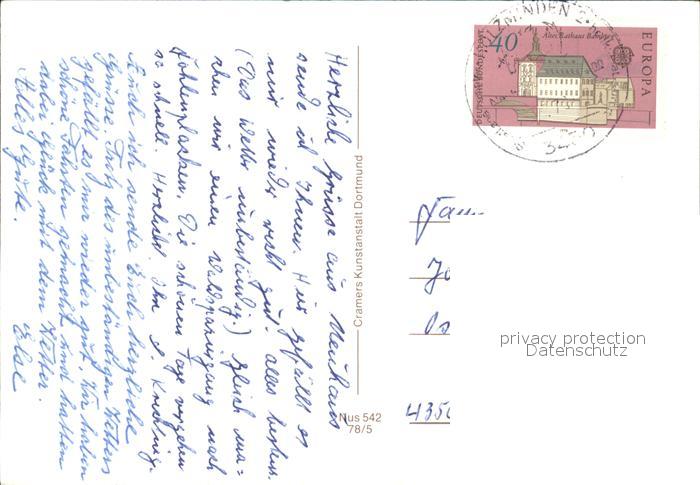 Herzliche Grüsse aus Neuhaus
sende ich Ihnen. Hier gefällt es
mir wieder recht gut. alles bestens.
(Das Wetter unbeständig.) Gleich ma=
chen wir einen Waldspaziergang nach
Die schönen Tage vergehen
so schnell. Herzlichst Ihr
Auch ich sende Euch herzliche
Grüsse. Trotz des unbeständigen Wetters
gefällt es mir wieder gut. Wir haben
schöne Fahrten gemacht und hatten
dabei Glück mit dem Wetter.
Alles Gute.
Else
Cramers Kunstanstalt Dortmund
Nus 542
78/5
40
Altes Rathaus Bamberg
EUROPA
DEUTSCHE BUNDESPOST
Fam
435
privacy protection
Datenschutz